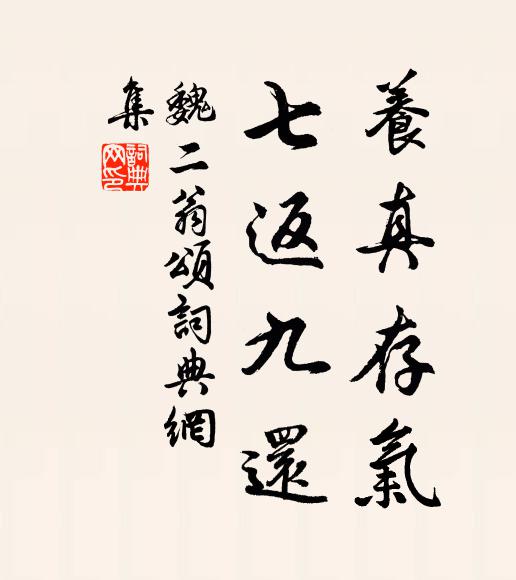 養真存氣
七返九還
魏二翁頌詞典網
集
詞典網印